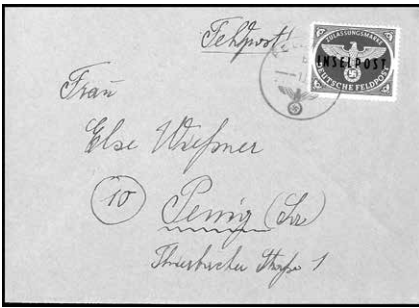 Feldpost
ZULASSUNGSMARKE
INSELPOST
DEUTSCHE FELDPOST
Frau
Else Wießner
10
Penig (Sa)
Straße 1